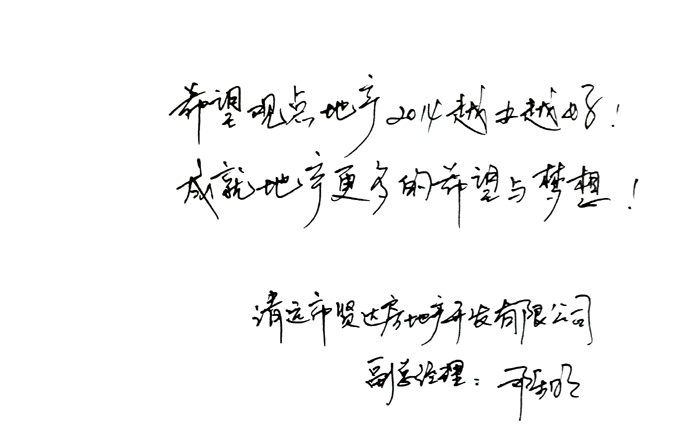 希望观点地产2014越办越好!
成就地产更多的希望与梦想!
清远市贤达房地产开发有限公司
副总经理: